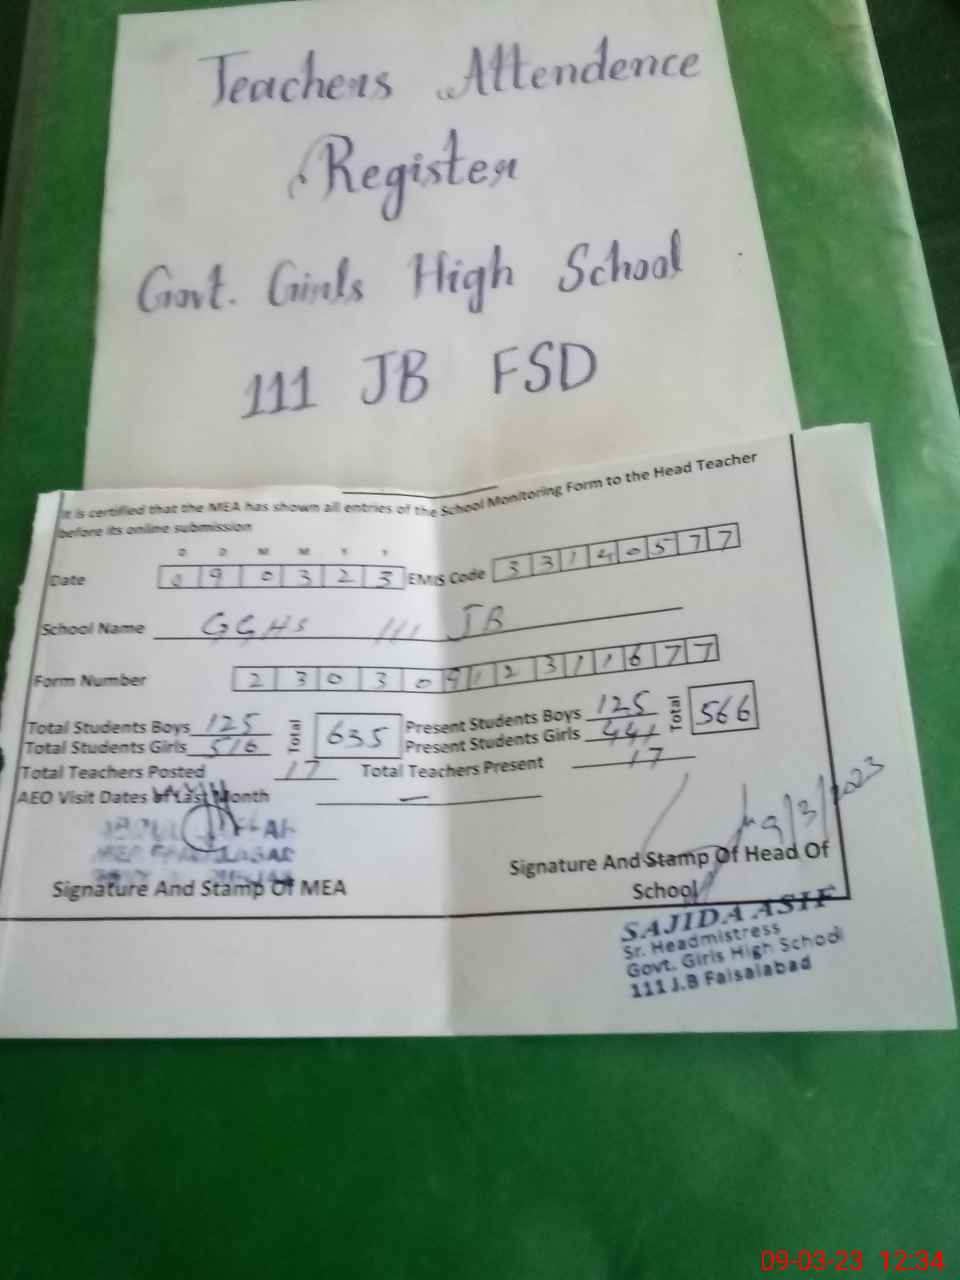 Teachers Attendence
Register
Govt. Girls High School
111 JB FSD
It is certified that the MEA has shown all entries of the School Monitoring Form to the Head Teacher
before its online submission
D D M M Y Y
Date 0 9 0 3 2 3 EMIS Code 3 3 1 4 0 5 7 7
School Name GGHS 111 JB
Form Number 2 3 0 3 0 9 1 2 3 1 1 6 7 7
Total Students Boys 125 Total 635 Present Students Boys 125 Total 566
Total Students Girls 516 Present Students Girls 441
Total Teachers Posted 17 Total Teachers Present 17
AEO Visit Dates of Last Month —
9/3/2023
Signature And Stamp Of MEA
Signature And Stamp Of Head Of
School
SAJIDA ASIF
Sr. Headmistress
Govt. Girls High School
111 J.B Faisalabad
09-03-23 12:34